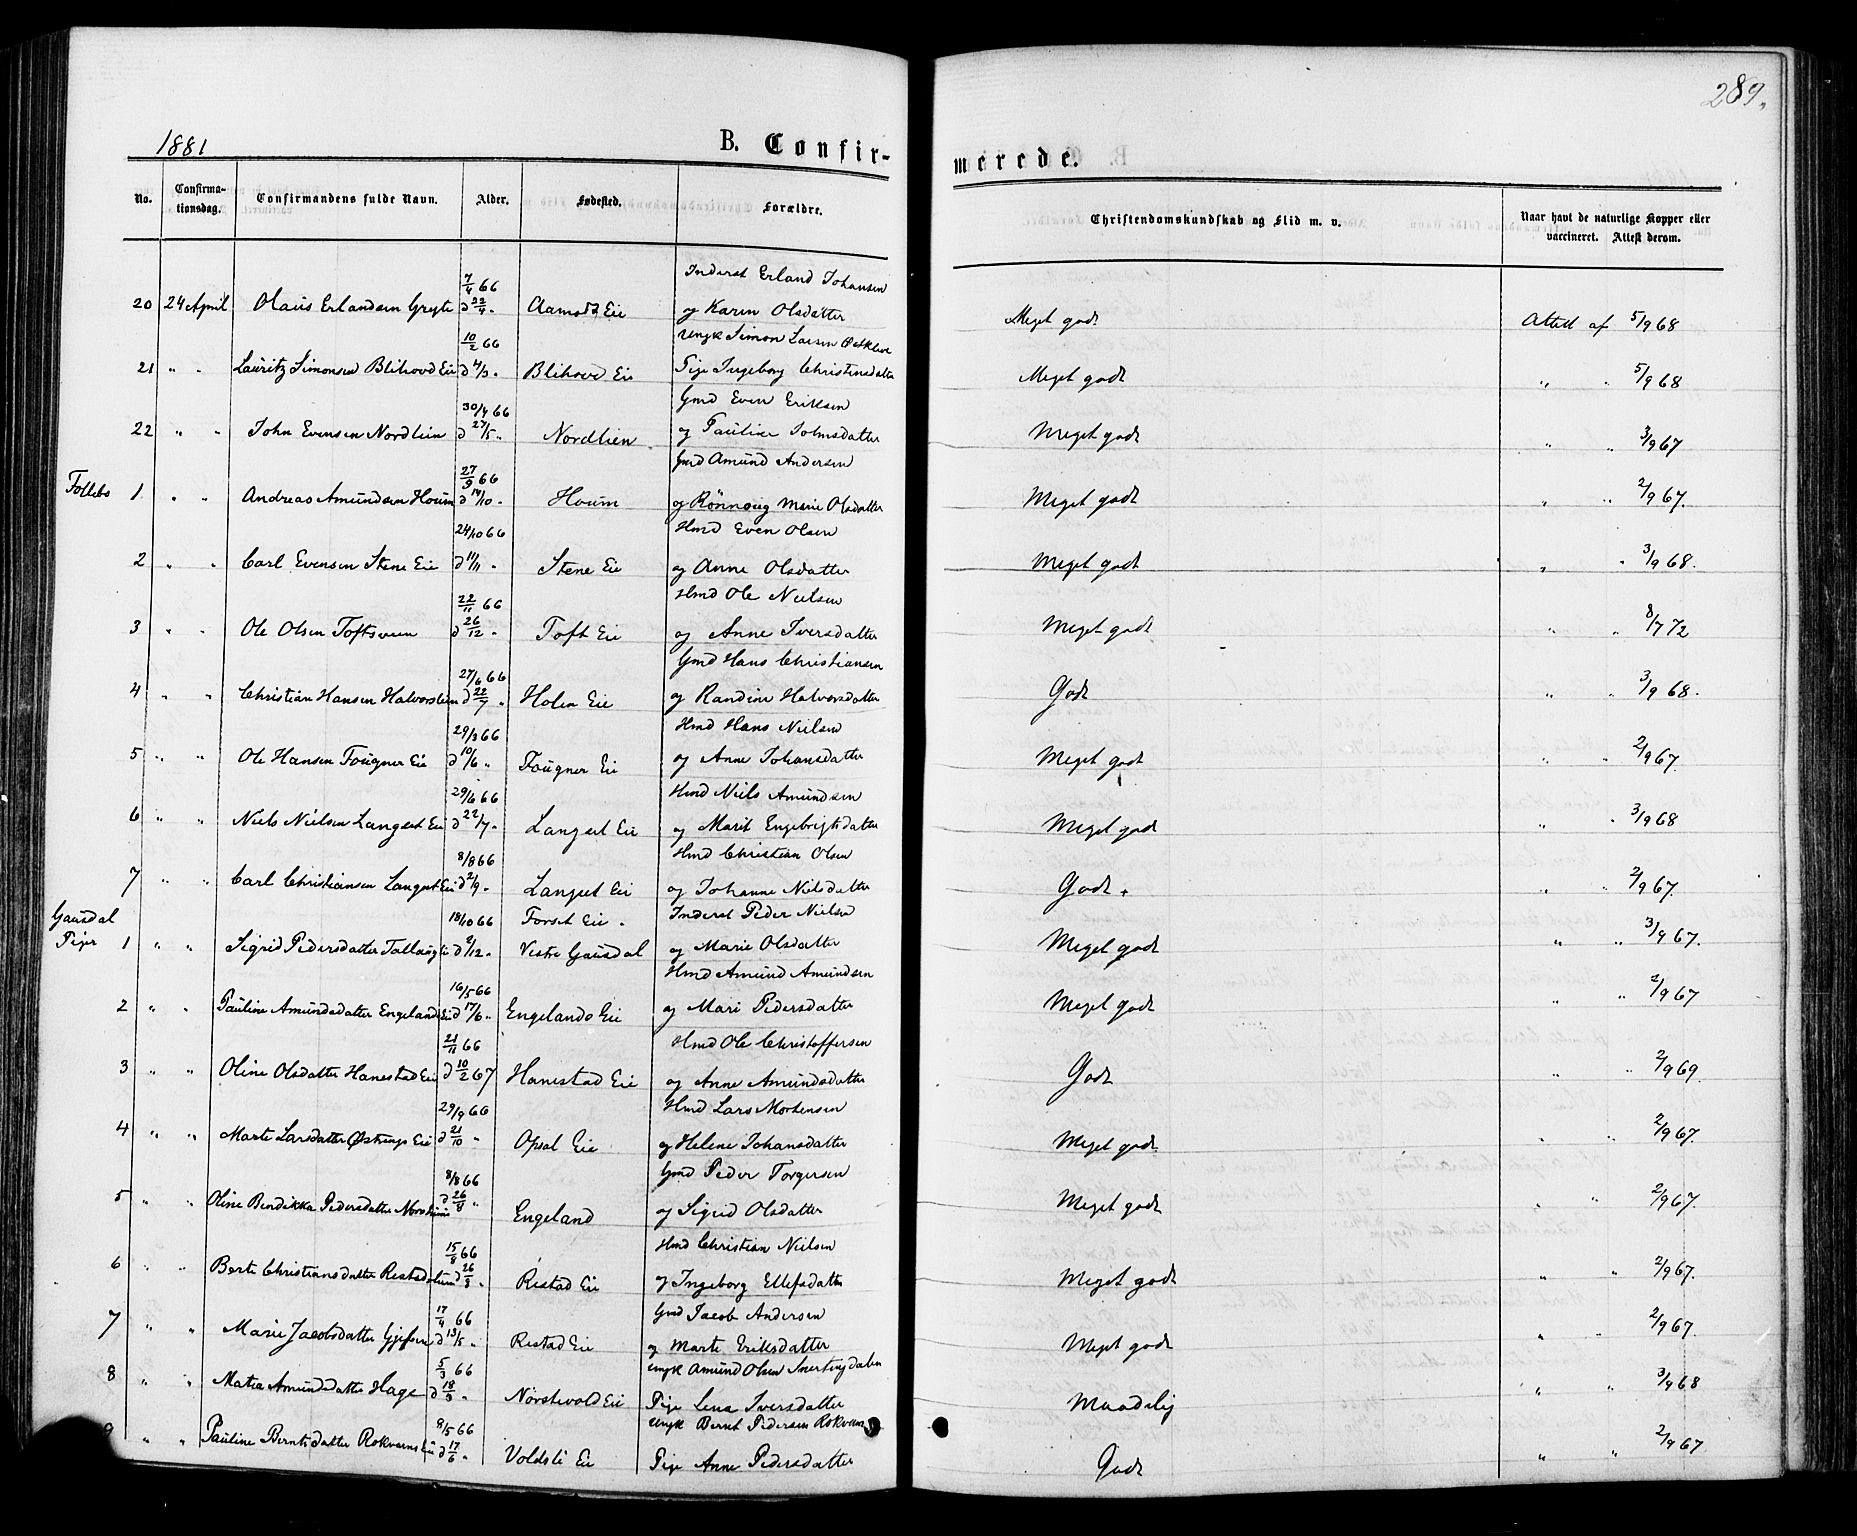 289.
1881
B. Confir-
merede.
No. Confirma-tionsdag. Confirmandens fulde Navn. Alder. Fødested. Forældre. Christendomskundskab og Flid m. v. Naar havt de naturlige Kopper eller vaccineret. Attest derom.
7/4 66 Inderst Erland Johansen
20 24 April Olaus Erlandsen d 22/4 " Eie og Karin Olsdatter Meget godt Attest af 5/9 68
10/2 66 Ungk Simon Larsen
21 " " Lauritz Simonsen Blihovd Eie d 4/3 " Blihovd Eie Pige Ingeborg Christensdatter Meget godt " " 5/9 68
30/4 66 Gmd Even Eriksen
22 " " John Evensen Nordlien d 27/5 " Nordlien og Pauline Johnsdatter Meget godt " " 3/9 67
27/9 66 Gmd Amund Andersen
Follebo 1 " " Andreas Amundsen Houm d 14/10 " Houm og Rønnoug Marie Olsdatter Meget godt " " 2/9 67.
24/10 66 Hmd Even Olsen
2 " " Carl Evensen Stene Eie d 11/11 " Stene Eie og Anne Olsdatter Meget godt " " 3/9 68.
22/11 66 Hmd Ole Nielsen
3 " " Ole Olsen Toftsveen d 26/12 " Toft Eie og Anne Iversdatter Meget godt " " 8/7 72
27/6 66 Gmd Hans Christiansen
4 " " Christian Hansen Halvorslien d 22/7 " Holen Eie og Randine Halvorsdatter Godt " " 3/9 68.
29/3 66 Hmd Hans Nielsen
5 " " Ole Hansen Fougner Eie d 10/6 " Fougner Eie og Anne Johansdatter Meget godt " " 2/9 67.
29/6 66 Hmd Niels Amundsen
6 " " Niels Nielsen Langset Eie d 22/7 " Langset Eie og Marit Engebrigtsdatter Meget godt " " 3/9 68
8/8 66 Hmd Christian Olsen
7 " " Carl Christiansen Langset Eie d 2/9 " Langset Eie og Johanne Nilsdatter Godt. " " 2/9 67.
Gausdal 18/10 66 Forset Eie. Inderst Peder Nielsen
Piger 1 " " Sigrid Pedersdatter d 2/12 " Vestre Gausdal og Marie Olsdatter Meget godt " " 3/9 67.
16/5 66 Hmd Amund Amundsen
2 " " Pauline Amundsdatter Engelands Eie d 17/6 " Engelands Eie og Mari Pedersdatter Meget godt " " 2/9 67
21/11 66 Hmd Ole Christoffersen
3 " " Oline Olsdatter Hanestad Eie d 10/2 67 Hanestad Eie og Anne Amundsdatter Godt " " 2/9 69.
29/9 66 Hmd Lars Mortensen
4 " " Marte Larsdatter Eie d 21/10 " Opsal Eie og Helene Johansdatter Meget godt " " 2/9 67.
8/8 66 Gmd Peder Torgersen
5 " " Oline Bendikka Pedersdatter d 26/8 " Engeland og Sigrid Olsdatter Meget godt " " 2/9 67.
15/8 66 Hmd Christian Nielsen
6 " " Berte Christiansdatter d 26/8 " Restad Eie og Ingeborg Ellefsdatter Meget godt " " 2/9 67.
17/4 66 Gmd Jacob Andersen
7 " " Marie Jacobsdatter d 13/5 " Restad Eie og Marte Eriksdatter Meget godt " " 2/9 67.
5/3 66 Ungk Amund Olsen Snertingdalen
8 " " Matea Amundsdatter Hage d 18/3 " Nørstevold Eie Pige Lena Iversdatter Maadelig " " 3/9 68
8/5 66 Ungk Bernt Pedersen Rokveen
9 " " Pauline Berntsdatter d 17/6 " Voldsli Eie Pige Anne Pedersdatter Godt " " 2/9 67